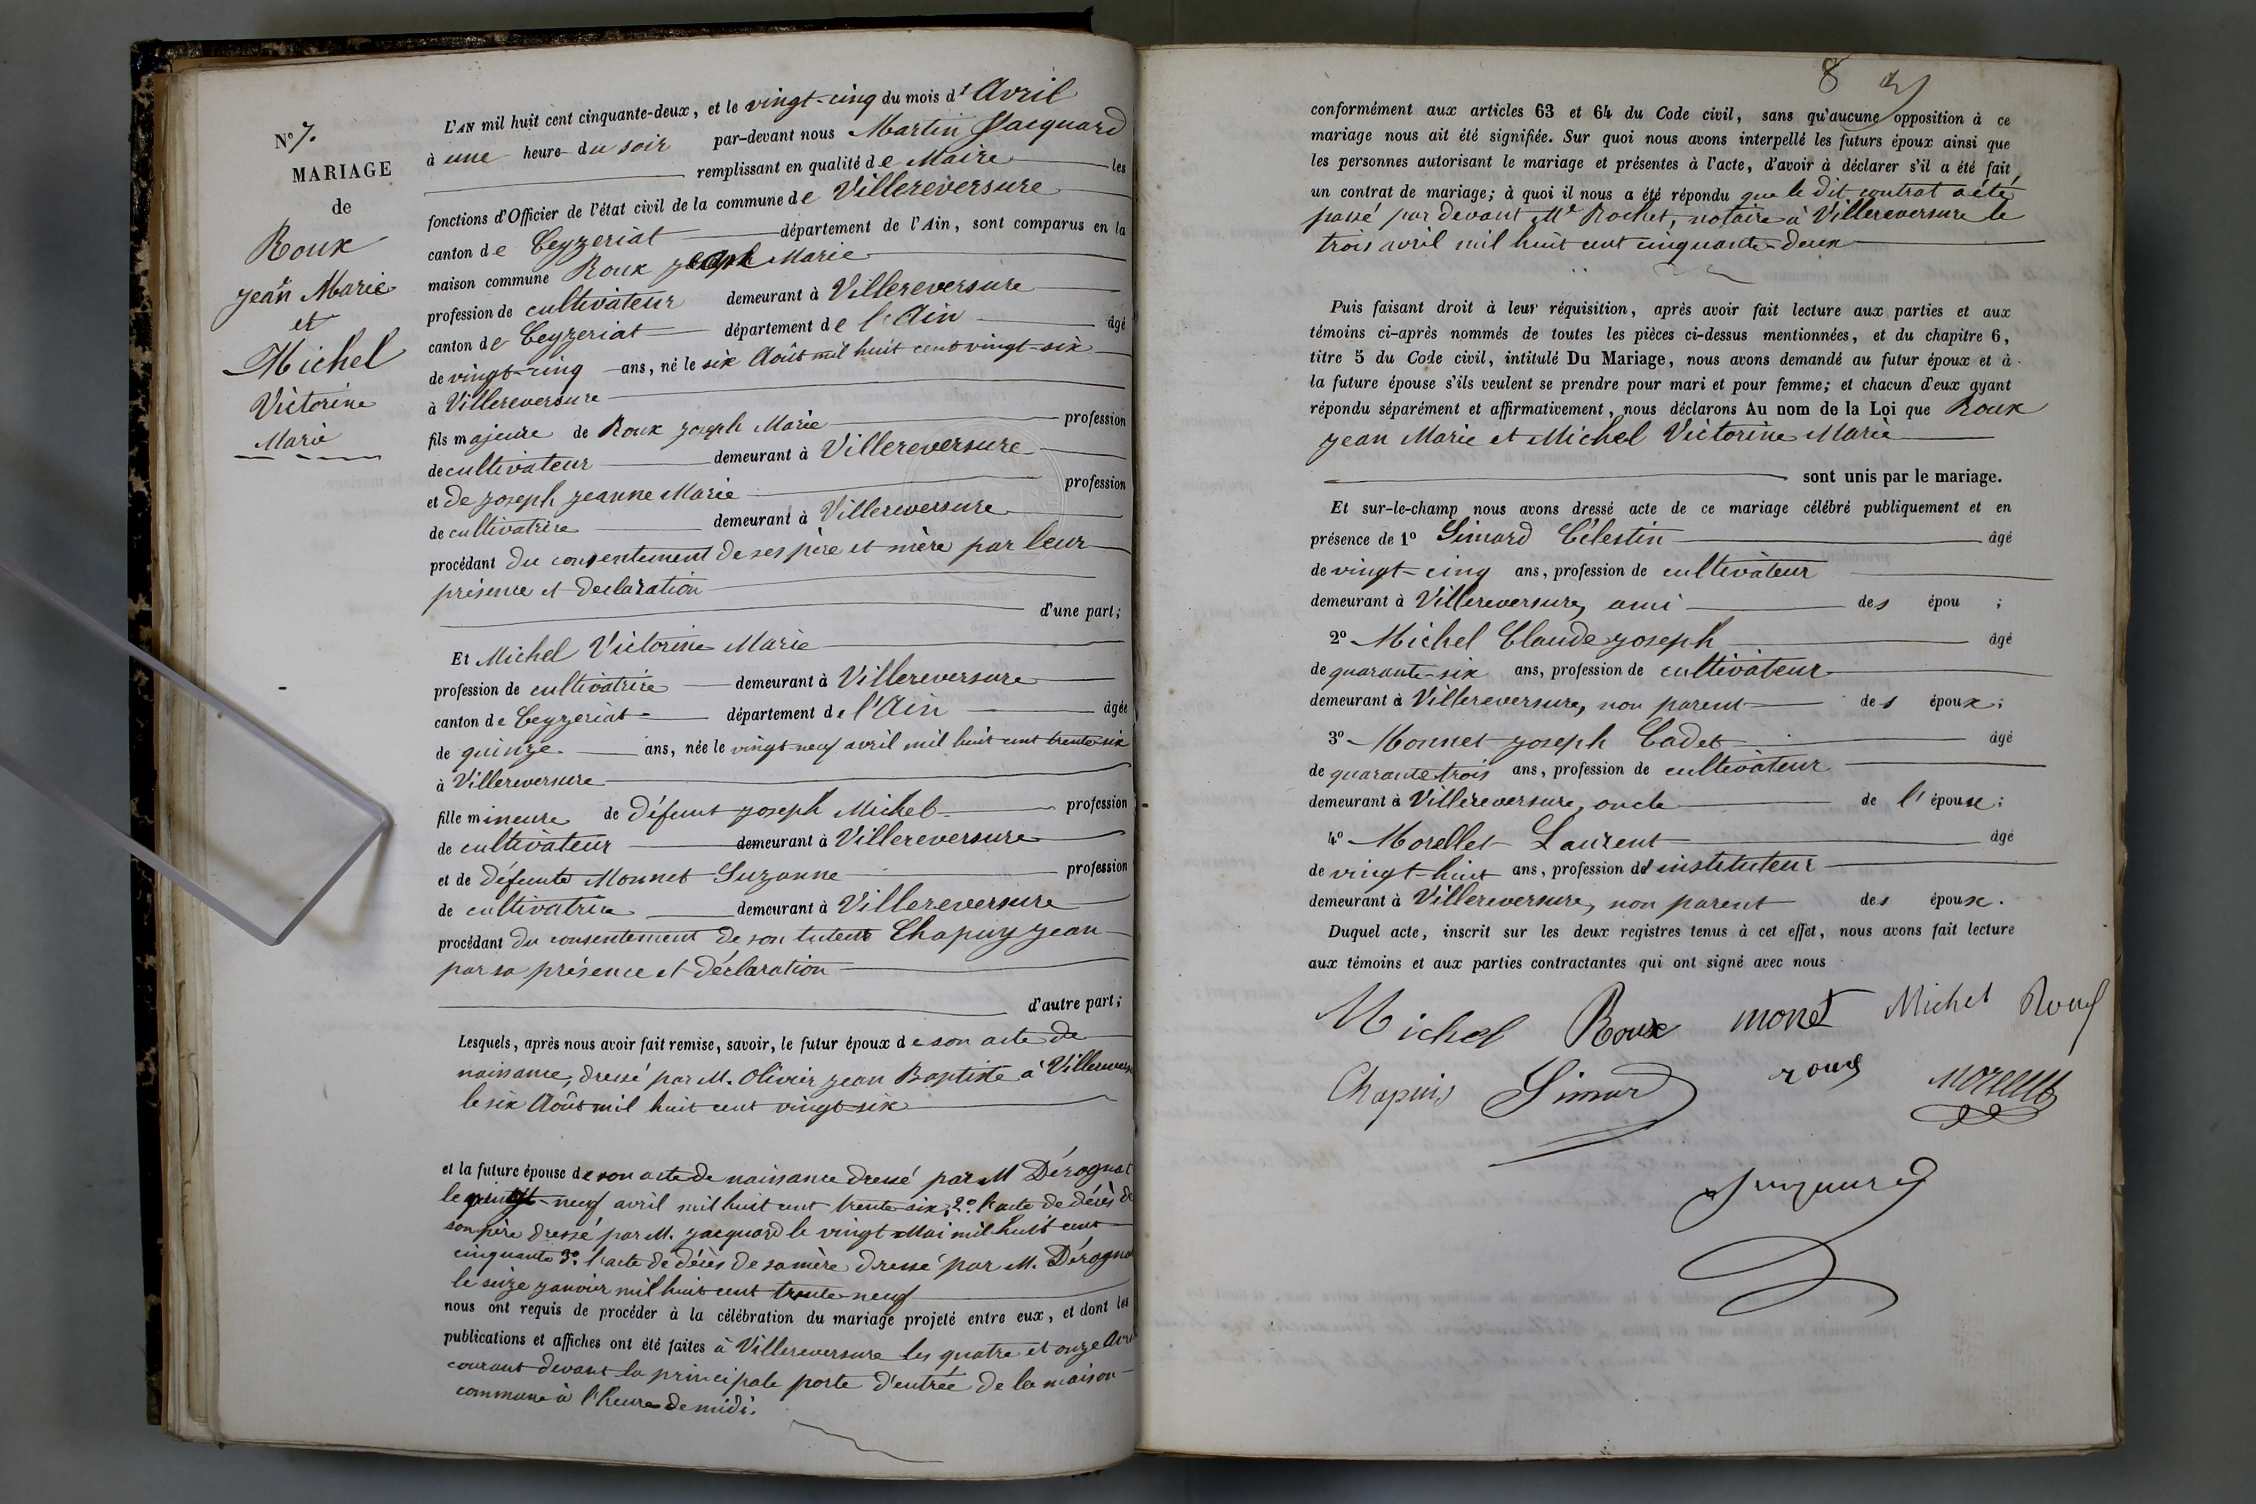 N° 7.
MARIAGE
de
Roux
Jean Marie
et
Michel
Victorine
Marie
L'AN mil huit cent cinquante-deux, et le vingt-cinq du mois d'Avril
à une heure du soir par-devant nous Martin Jacquard
remplissant en qualité de Maire les
fonctions d'Officier de l'état civil de la commune de Villereversure
canton de Ceyzeriat département de l'Ain, sont comparus en la
maison commune Roux Marie
profession de cultivateur demeurant à Villereversure
canton de Ceyzeriat département de l'Ain âgé
de vingt-cinq ans, né le six Août mil huit cent vingt-six
à Villereversure
fils majeure de Roux Joseph Marie profession
de cultivateur demeurant à Villereversure
et de Joseph Jeanne Marie profession
de cultivatrice demeurant à Villereversure
procédant du consentement de ses père et mère par leur
présence et declaration
d'une part;
Et Michel Victorine Marie
profession de cultivatrice demeurant à Villereversure
canton de Ceyzeriat département de l'Ain âgée
de quinze ans, née le vingt neuf avril mil huit cent trente-six
à Villereversure
fille mineure de défunt Joseph Michel profession
de cultivateur demeurant à Villereversure
et de défunte Monnet Suzanne profession
de cultivatrice demeurant à Villereversure
procédant du consentement de son tuteur Chapuy Jean
par sa présence et déclaration
d'autre part;
Lesquels, après nous avoir fait remise, savoir, le futur époux de son acte de
naissance, dressé par M. Olivier Jean Baptiste à
le six Août mil huit cent vingt-six
et la future épouse de son acte de naissance dressé par M Dérognat
le vingt-neuf avril mil huit cent trente six, 2° l'acte de décès de
son père dressé par M. Jacquard le vingt Mai mil huit cent
cinquante 3° l'acte de décès de sa mère dressé par M. Dérognat
le seize janvier mil huit cent trente neuf
nous ont requis de procéder à la célébration du mariage projeté entre eux, et dont les
publications et affiches ont été faites à Villereversure les quatre et onze Avril
courant devant la principale porte d'entrée de la maison
commune à l'heure de midi.
8
conformément aux articles 63 et 64 du Code civil, sans qu'aucune opposition à ce
mariage nous ait été signifiée. Sur quoi nous avons interpellé les futurs époux ainsi que
les personnes autorisant le mariage et présentes à l'acte, d'avoir à déclarer s'il a été fait
un contrat de mariage; à quoi il nous a été répondu que le dit contrat a été
passé par devant Me Rochet, notaire à Villereversure le
trois avril mil huit cent cinquante-deux
Puis faisant droit à leur réquisition, après avoir fait lecture aux parties et aux
témoins ci-après nommés de toutes les pièces ci-dessus mentionnées, et du chapitre 6,
titre 5 du Code civil, intitulé Du Mariage, nous avons demandé au futur époux et à
la future épouse s'ils veulent se prendre pour mari et pour femme; et chacun d'eux ayant
répondu séparément et affirmativement, nous déclarons Au nom de la Loi que Roux
Jean Marie et Michel Victorine Marie
sont unis par le mariage.
Et sur-le-champ nous avons dressé acte de ce mariage célébré publiquement et en
présence de 1° Simard Célestin âgé
de vingt-cinq ans, profession de cultivateur
demeurant à Villereversure, ami des épou ;
2° Michel Claude Joseph âgé
de quarante-six ans, profession de cultivateur
demeurant à Villereversure, non parent des époux;
3° Monnet Joseph Cadet âgé
de quarante trois ans, profession de cultivateur
demeurant à Villereversure, oncle de l'épouse;
4° Morellet Laurent âgé
de vingt-huit ans, profession d'instituteur
demeurant à Villereversure, non parent des époux.
Duquel acte, inscrit sur les deux registres tenus à cet effet, nous avons fait lecture
aux témoins et aux parties contractantes qui ont signé avec nous
Michel Roux monet Michel Roux
Chapuis Simard roux morellet
Jacquard